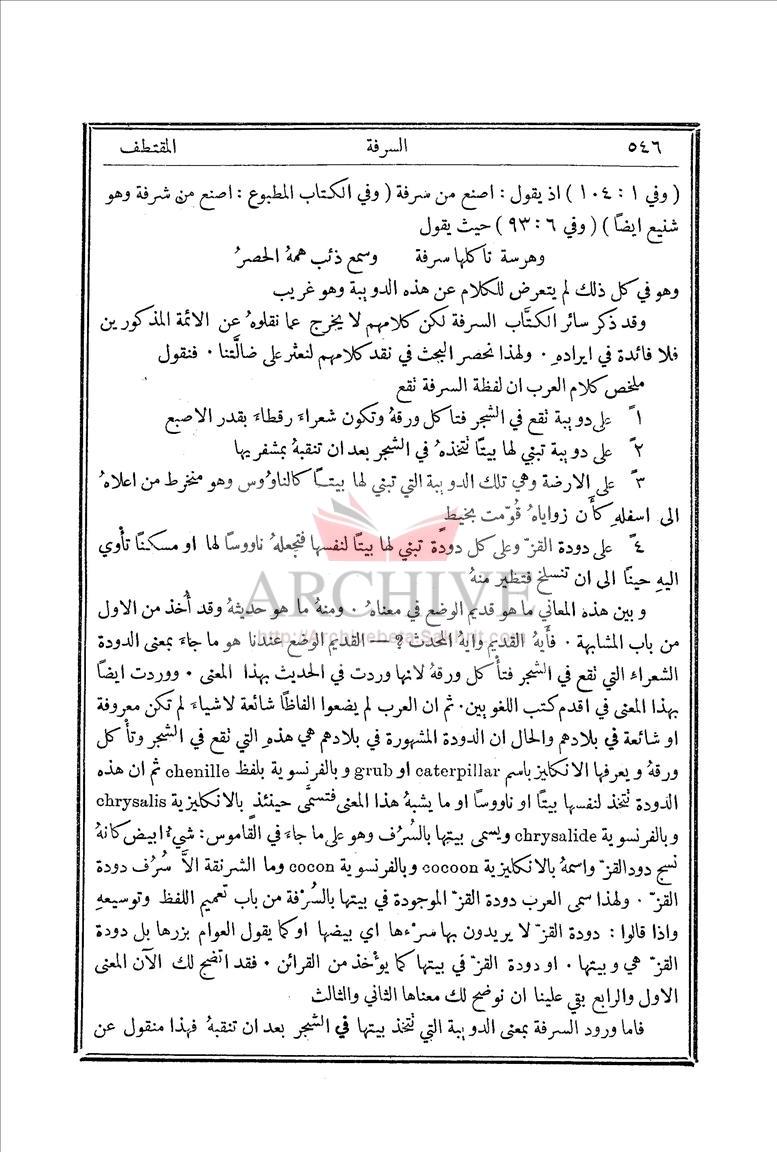 ٥٤٦ السرفة المقتطف
( وفي ١ : ١٠٤ ) اذ يقول : اصنع من سرفة ( وفي الكتاب المطبوع : اصنع من شرفة وهو
شنيع ايضًا ) ( وفي ٦ : ٩٣ ) حيث يقول
وهرسة تاكلها سرفة وسمع ذئب همهُ الحصرُ
وهو في كل ذلك لم يتعرض للكلام عن هذه الدويبة وهو غريب
وقد ذكر سائر الكتَّاب السرفة لكن كلامهم لا يخرج عما نقلوهُ عن الائمة المذكورين
فلا فائدة في ايرادهِ . ولهذا نحصر البحث في نقد كلامهم لنعثر على ضالَّتنا . فنقول
ملخص كلام العرب ان لفظة السرفة تقع
١ً على دويبة تقع في الشجر فتاكل ورقهُ وتكون شعراءَ رقطاءَ بقدر الاصبع
٢ً على دويبة تبتني لها بيتًا تتخذهُ في الشجر بعد ان تنقبهُ بمشفريها
٣ً على الارضة وهي تلك الدويبة التي تبتني لها بيتـًا كالناوُوس وهو منخرط من اعلاهُ
الى اسفلهِ كأَن زواياهُ قُوّمت بخيطٍ
٤ً على دودة القزّ وعلى كل دودة تبني لها بيتًا لنفسها فتجعلهُ ناووسًا لها او مسكنًا تأوي
اليهِ حينًا الى ان تنسلخ فتطير منهُ
ARCHIVE
http://Archivebeta.Sakhrit.com
و بين هذه المعاني ما هو قديم الوضع في معناهُ . ومنهُ ما هو حديثهُ وقد أُخذ من الاول
من باب المشابهة . فأَيهُ القديم وايهُ المحدث ? — القديم الوضع عندنا هو ما جاءَ بمعنى الدودة
الشعراء التي تقع في الشجر فتأكل ورقهُ لانها وردت في الحديث بهذا المعنى . ووردت ايضًا
بهذا المعنى في اقدم كتب اللغويين . ثم ان العرب لم يضعوا الفاظًا شائعة لاشياءَ لم تكن معروفة
او شائعة في بلادهم والحال ان الدودة المشهورة في بلادهم هي هذه التي تقع في الشجر وتأكل
ورقهُ ويعرفها الانكليز باسم caterpillar او grub و بالفرنسوية بلفظ chenille ثم ان هذه
الدودة تتخذ لنفسها بيتًا او ناووسًا او ما يشبهُ هذا المعنى فتسمَّى حينئذٍ بالانكليزية chrysalis
و بالفرنسوية chrysalide ويسمى بيتها بالسُرُف وهو على ما جاءَ في القاموس : شيءٌ ابيض كانهُ
نسج دود القزّ واسمهُ بالانكليزية cocoon وبالفرنسوية cocon وما الشرنقة الاَّ سُرُف دودة
القزّ . ولهذا سمى العرب دودة القزّ الموجودة في بيتها بالسُرْفة من باب تعميم اللفظ وتوسيعهِ
واذا قالوا : دودة القزّ لا يريدون بها سرءَها اي بيضها او كما يقول العوام بزرها بل دودة
القزّ هي وبيتها . او دودة القزّ في بيتها كما يؤخذ من القرائن . فقد اتضح لك الآن المعنى
الاول والرابع بقي علينا ان نوضح لك معناها الثاني والثالث
فاما ورود السرفة بمعنى الدويبة التي تتخذ بيتها في الشجر بعد ان تنقبهُ فهذا منقول عن